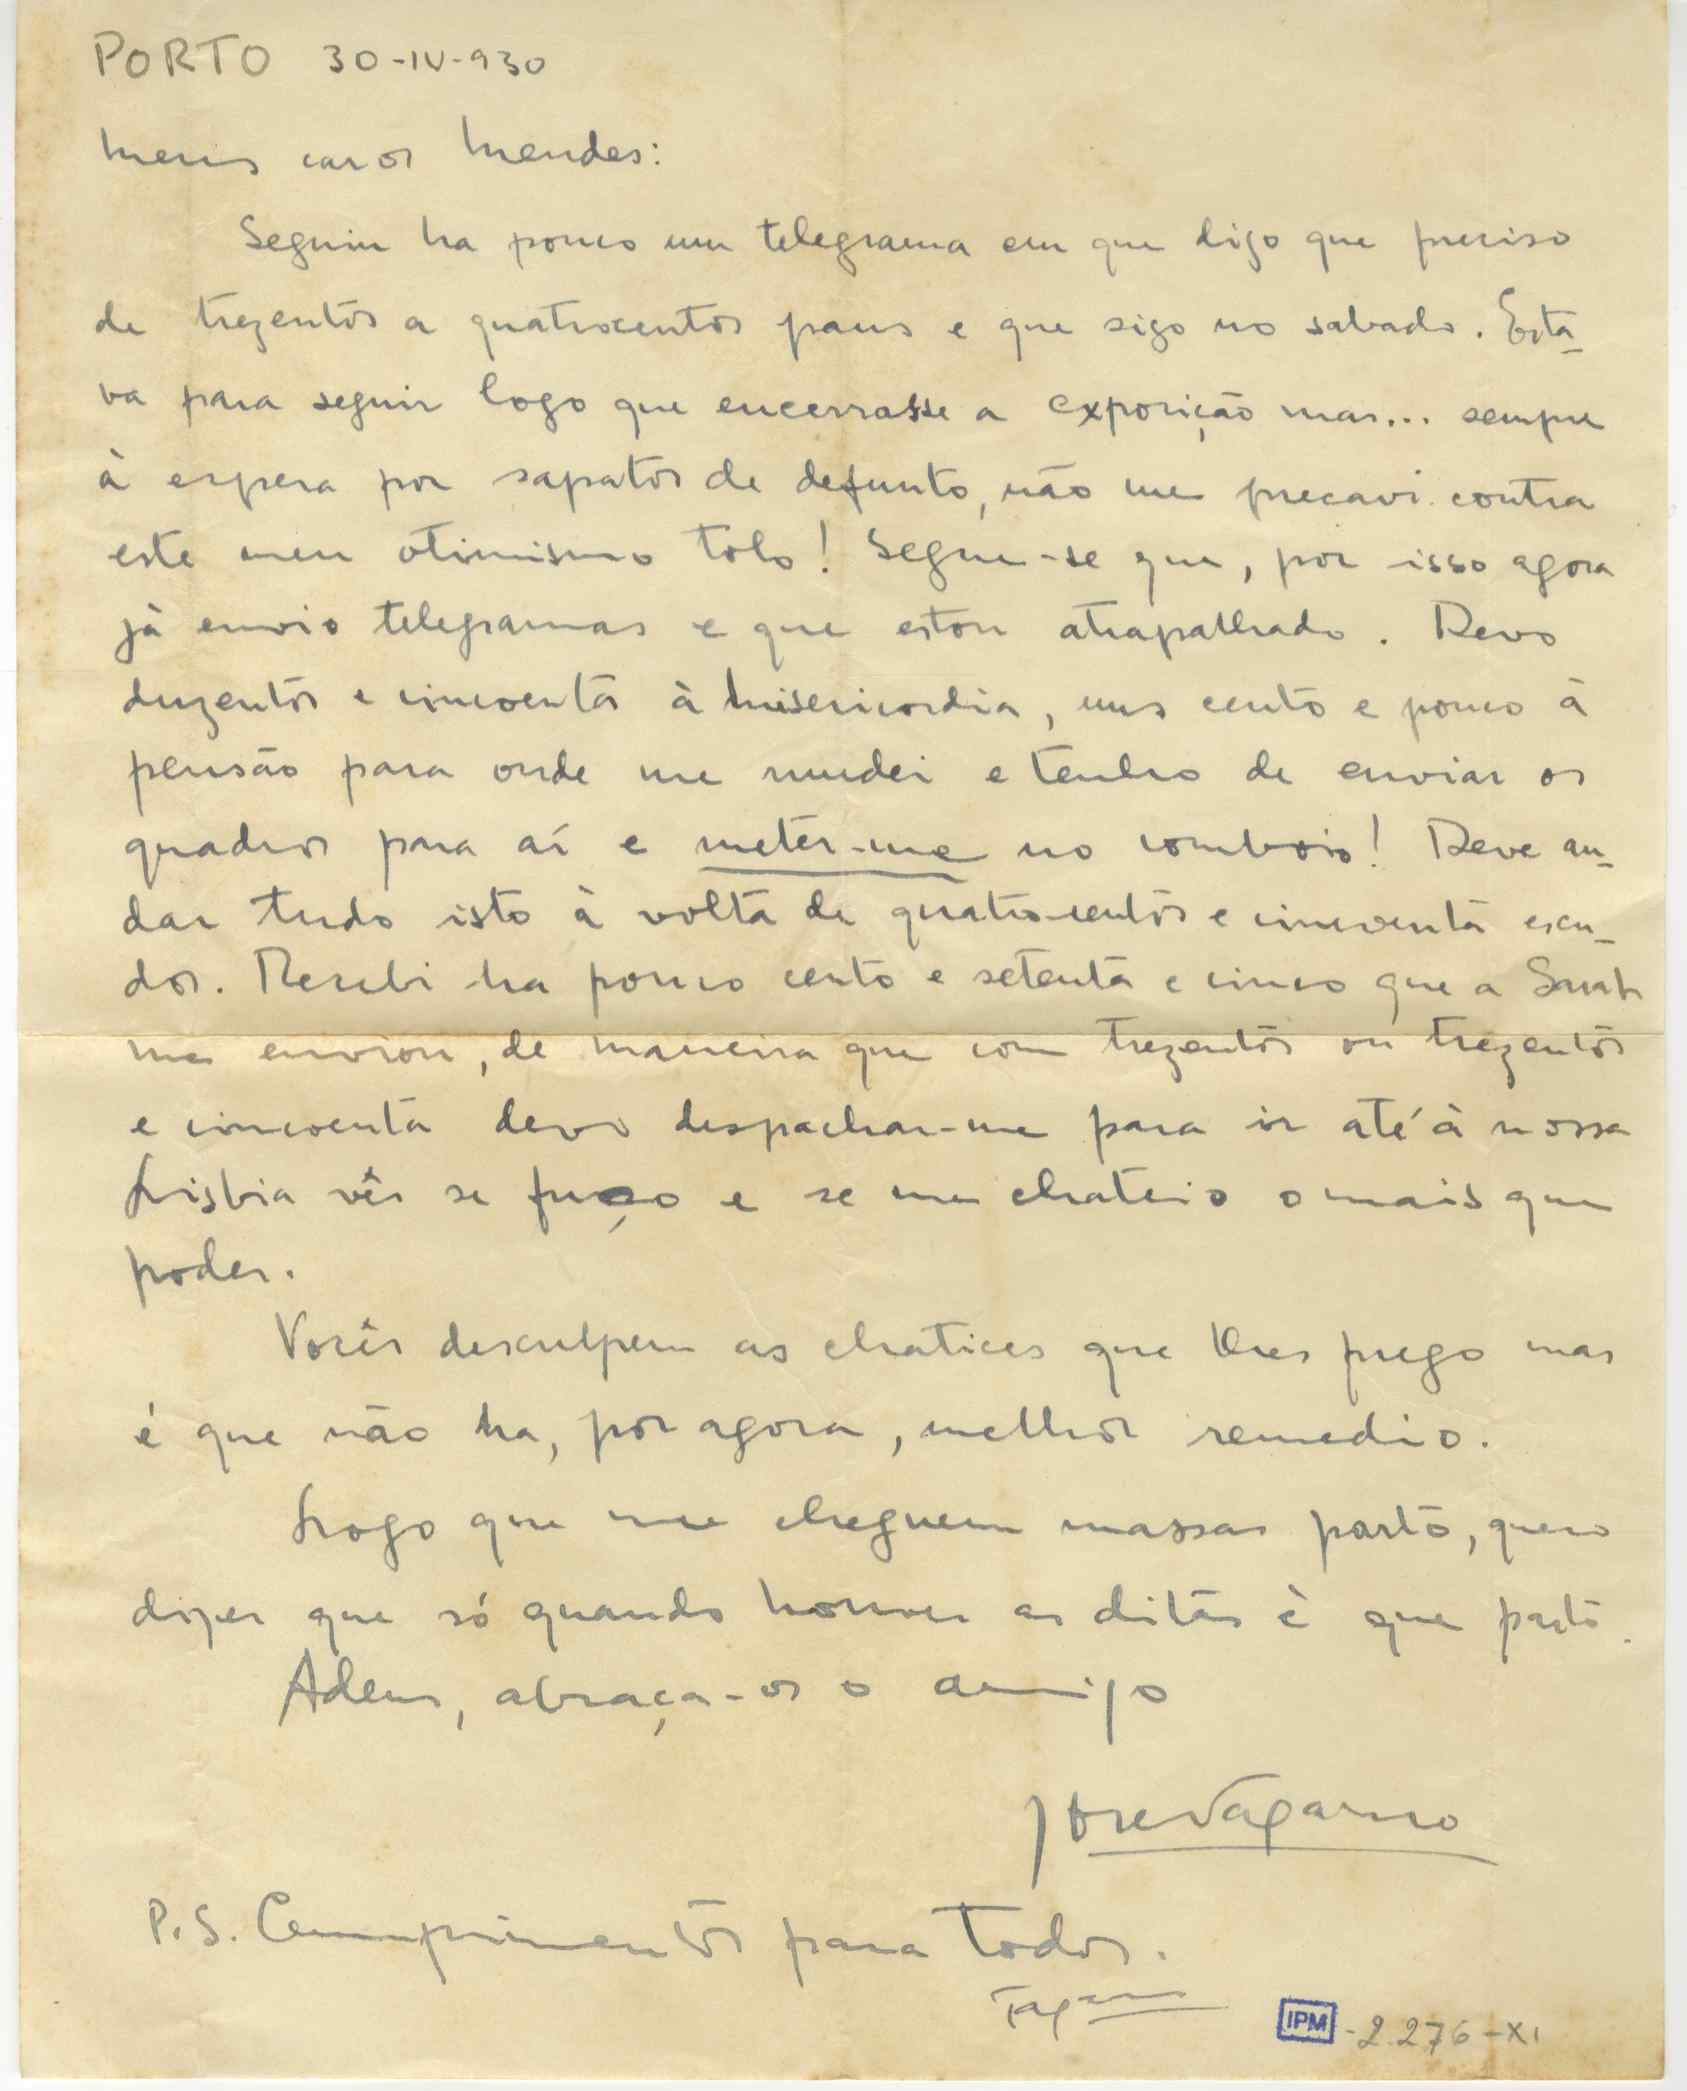 PORTO 30-IV-930
Meus caros Mendes:
Seguiu ha pouco um telegrama em que digo que preciso
de trezentos a quatrocentos paus e que sigo no sabado. Esta-
va para seguir logo que encerrasse a exposição mas... sempre
à espera por sapatos de defunto, não me precavi contra
este meu otimismo tolo! Segue-se que, por isso agora
já envio telegramas e que estou atrapalhado. Devo
duzentos e cincoenta à Misericordia, uns cento e pouco á
pensão para onde me mudei e tenho de enviar os
quadros para aí e meter-me no comboio! Deve an-
dar tudo isto à volta de quatrocentos e cincoenta escu-
dos. Recebi ha pouco cento e setenta e cinco que a
me enviou, de maneira que com trezentos ou trezentos
e cincoenta devo despachar-me para ir até à nossa
Lisbia vêr se fuço e se me chateio o mais que
poder.
Vocês desculpem as chatices que lhes prego mas
é que não ha, por agora, melhor remedio.
Logo que me cheguem massas parto, quero
dizer que só quando houver as ditas é que parto.
Adeus, abraça-os o amigo
Jorge Tagarro
P.S. Cumprimentos para todos.
IPM -2.276-XI